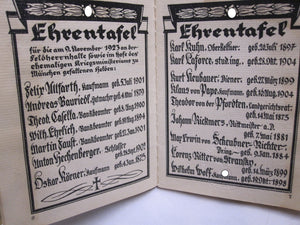 Ehrentafel
für die am 9. November 1923 an der
Feldherrnhalle sowie im Hof des
ehemaligen Kriegsministeriums zu
München gefallenen Helden:
Felix Allfarth, Kaufmann geb. 5. Juli 1901
Andreas Bauriedl, Hutmacher geb. 4. Mai 1879
Theod. Casella, Bankbeamter geb. 8. Aug. 1900
Wilh. Ehrlich, Bankbeamter geb. 1894
Martin Faust, Bankbeamter geb. 27. Jan. 1901
Anton Hechenberger, Schlosser
geb. 28. Sept. 1902
Oskar Körner, Kaufmann
geb. 4. Jan. 1875
Ehrentafel
Karl Kuhn, Oberkellner geb. 1897
Karl Laforce, stud. ing. geb. 28. Okt. 1904
Kurt Neubauer, Diener geb. 27. März 1899
Klaus von Pape, Kaufmann geb. 16. Aug. 1904
Theodor von der Pfordten, Landgerichtsrat
geb. 14. Mai 1873
Johann Rickmers, Rittmeister a. D.
geb. 7. Mai 1881
Max Erwin von Scheubner-Richter,
Dr. ing. geb. 9. Jan. 1884
Lorenz, Ritter von Stransky,
geb. 14. März 1899
Wilhelm Wolf, Kaufmann
geb. 19. Okt. 1898